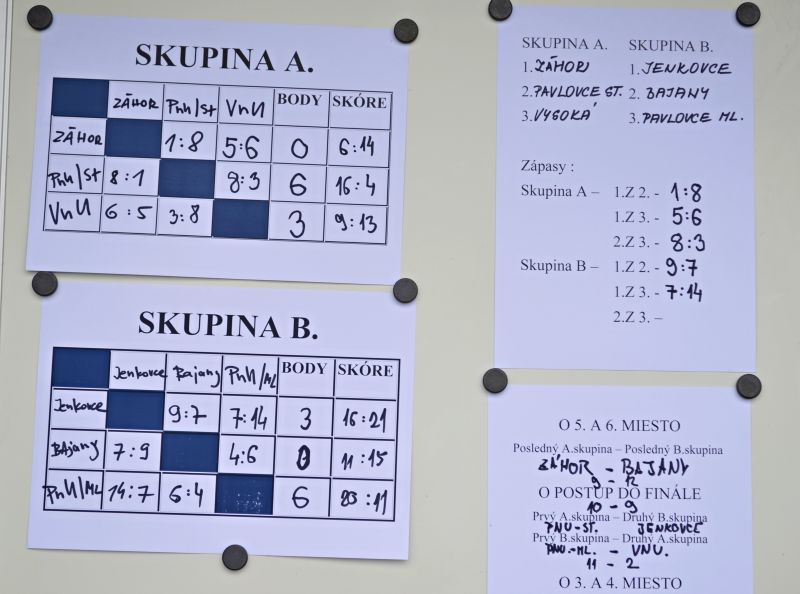 SKUPINA A.
ZÁHOR PnU/St VnU BODY SKÓRE
ZÁHOR 1:8 5:6 0 6:14
PnU/St 8:1 8:3 6 16:4
VnU 6:5 3:8 3 9:13
SKUPINA B.
Jenkovce Bajany PnU/ML BODY SKÓRE
Jenkovce 9:7 7:14 3 16:21
BAjany 7:9 4:6 0 11:15
PnU/ML 14:7 6:4 6 20:11
SKUPINA A. SKUPINA B.
1. ZÁHOR 1. JENKOVCE
2. PAVLOVCE ST. 2. BAJANY
3. VYSOKÁ 3. PAVLOVCE ML.
Zápasy :
Skupina A – 1.Z 2. - 1:8
1.Z 3. - 5:6
2.Z 3. - 8:3
Skupina B – 1.Z 2. - 9:7
1.Z 3. - 7:14
2.Z 3. –
O 5. A 6. MIESTO
Posledný A.skupina – Posledný B.skupina
ZÁHOR - BAJANY
9 - 12
O POSTUP DO FINÁLE
10 - 9
Prvý A.skupina – Druhý B.skupina
PNU-ST. JENKOVCE
Prvý B.skupina – Druhý A.skupina
PNU.-ML. - VNU.
11 - 2
O 3. A 4. MIESTO